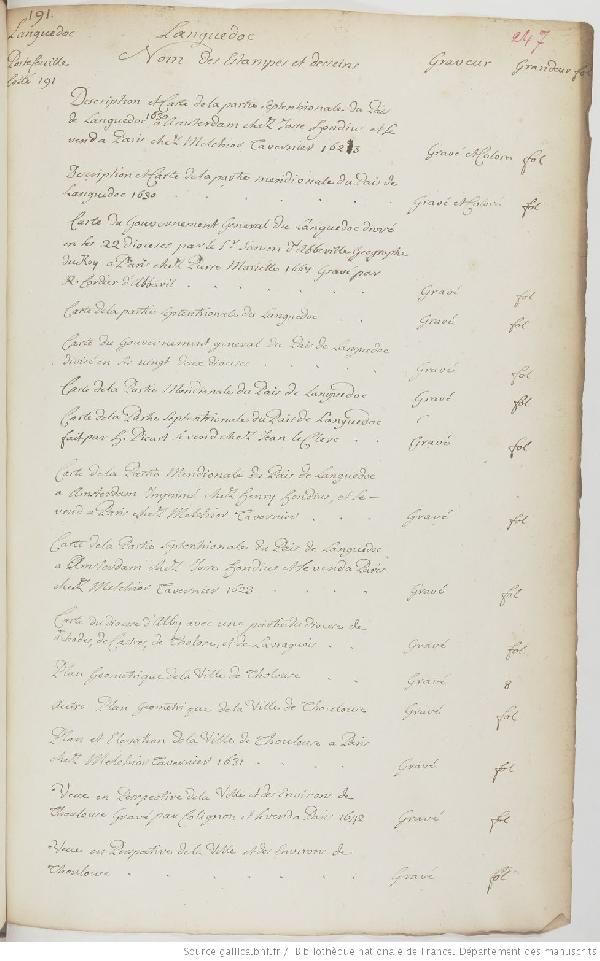 191.
Languedoc
Portefeuille
Cotté 191
Languedoc
247
Nom des Estampes et desseins Graveur Grandeur fol
Description et Carte de la partie septentrionale du Païs
de Languedoc 1630 a Amsterdam chez Jorre hondius et se
vend a Paris chez Melchior Tavernier 1623 Gravé et Colom fol
Description et Carte de la partie meridionale du Païs de
Languedoc 1630 Gravé et Colori fol
Carte du Gouvernement General du Languedoc divisé
en ses 22 dioceses par le Sr. Sanson d'Abbeville Geographe
du Roy a Paris chez Pierre Mariette 1667 Gravé par
R. Cordier d'Abbevil Gravé fol
Carte de la partie septentrionale du Languedoc Gravé fol
Carte du Gouvernement general du Païs de Languedoc
divisé en ses vingt deux dioceses Gravé fol
Carte de la Partie Meridionale du Païs de Languedoc Gravé fol
Carte de la Partie Septentrionale du Païs de Languedoc
fait par H. Picart se vend chez Jean le Clerc Gravé fol
Carte de la Partie Meridionale du Païs de Languedoc
a Amsterdam Imprimé chez Henry hondius, et se
vend a Paris chez Melchior Tavernier Gravé fol
Carte de la Partie septentrionale du Païs de Languedoc
a Amsterdam chez Jorre hondius et se vend a Paris
chez Melchior Tavernier 1623 Gravé fol
Carte du diocese d'Alby avec une partie du diocese de
Rhodes, de Castres, de Tholose, et de Lavragois Gravé fol
Plan Geometrique de la Ville de Tholouse Gravé 8
Autre Plan Geometrique de la Ville de Thoulouse Gravé fol
Plan et Elevation de la Ville de Thoulouse a Paris
chez Melchior Tavernier 1631 Gravé fol
Veue en Perspective de la Ville et des Environs de
Thoulouse Gravé par Colignon et se vend a Paris 1642 Gravé fol
Veue en Perspective de la Ville et des Environs de
Thoulouse Gravé fol
Source gallica.bnf.fr / Bibliothèque nationale de France. Département des manuscrits